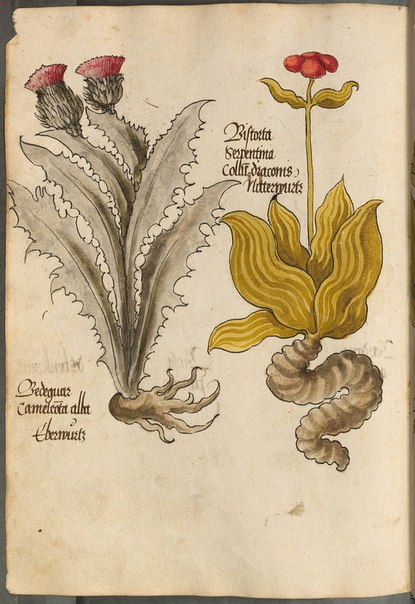 Bistorta
Serpentina
Collū draconis
Natterwurtz
Bedeguar
Camelcōta alba
Eberwurtz